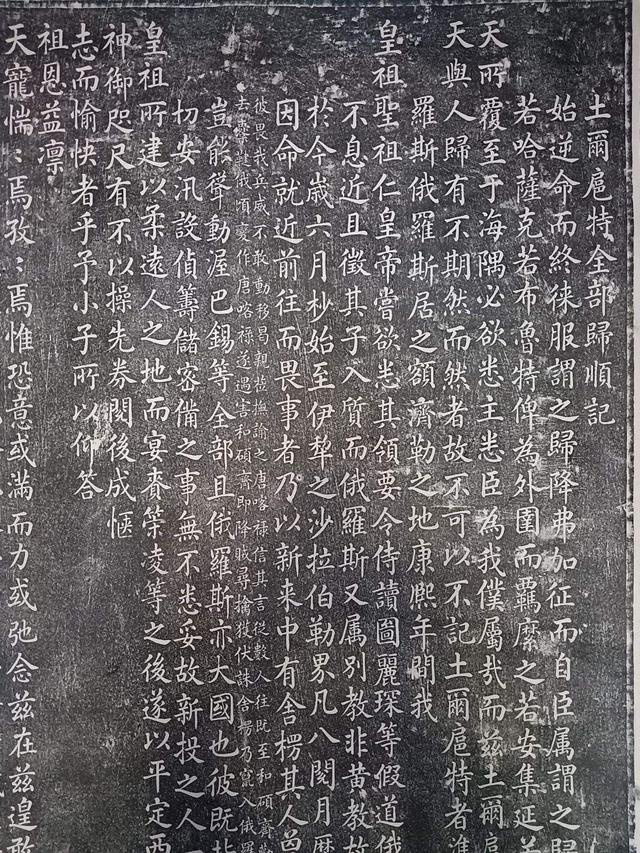 土爾扈特全部歸順記
始逆命而終徠服謂之歸降弗加征而自臣属謂之歸
若哈薩克若布魯特俾為外圉而羈縻之若安集延
天所覆至于海隅必欲悉主悉臣為我僕屬哉而兹土爾扈
天與人歸有不期然而然者故不可以不記土爾扈特者準
羅斯俄羅斯居之額濟勒之地康熙年間我
皇祖聖祖仁皇帝嘗欲悉其領要令侍讀圖麗琛等假道俄
不息近且徵其子入質而俄羅斯又属別教非黄教故
於今嵗六月杪始至伊犁之沙拉伯勒界凡八閱月歷
因命就近前往而畏事者乃以新来中有舍楞其人曾
彼畏我兵威不敢動移曷親莅撫諭之唐喀禄信其言從數人往既至和碩齊
去橐鞬俄頃變作唐喀禄遂遇害和碩齊即降賊尋擒獲伏誅舍楞乃竄入俄羅
豈能聳動渥巴錫等全部且俄羅斯亦大國也彼既背
切安汛設偵籌儲密備之事無不悉妥故新投之人
皇祖所建以柔遠人之地而宴賚策凌等之後遂以平定西
神御咫尺有不以操先券閱後成愜
志而愉快者乎予小子所以仰答
祖恩益凛
天寵惴〻焉孜〻焉惟恐意或滿而力或弛念兹在兹遑敢